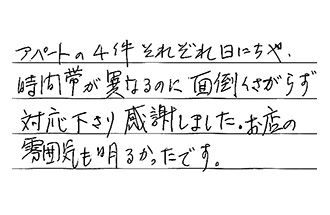 アパートの4件それぞれ日にちや、
時間帯が異なるのに面倒くさがらず
対応下さり感謝しました。お店の
雰囲気も明るかったです。